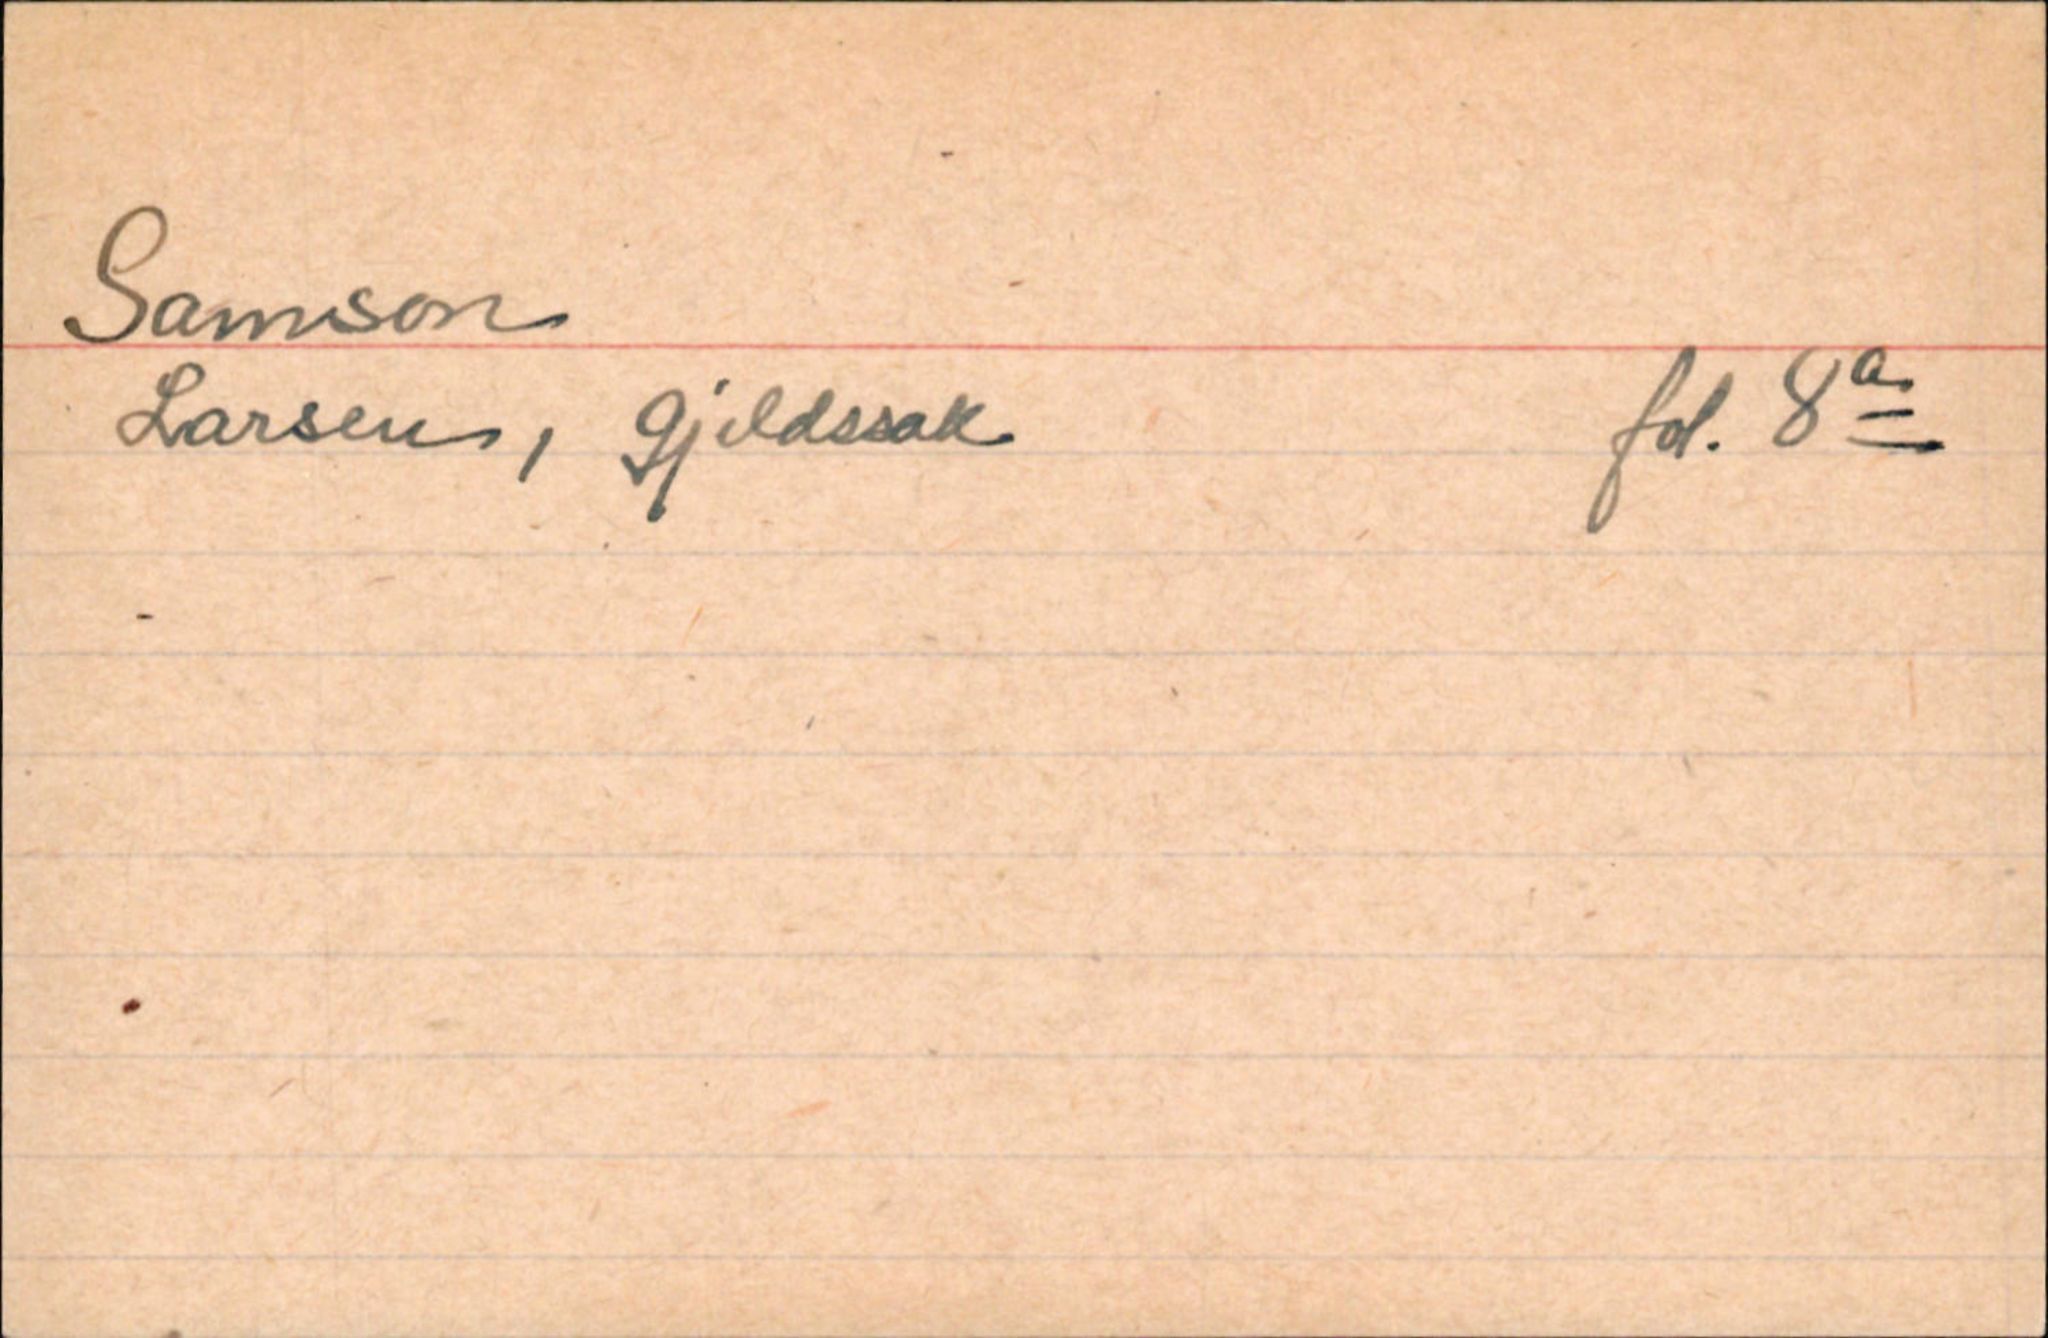 Samson
Larsen, gjeldssak fol. 8a